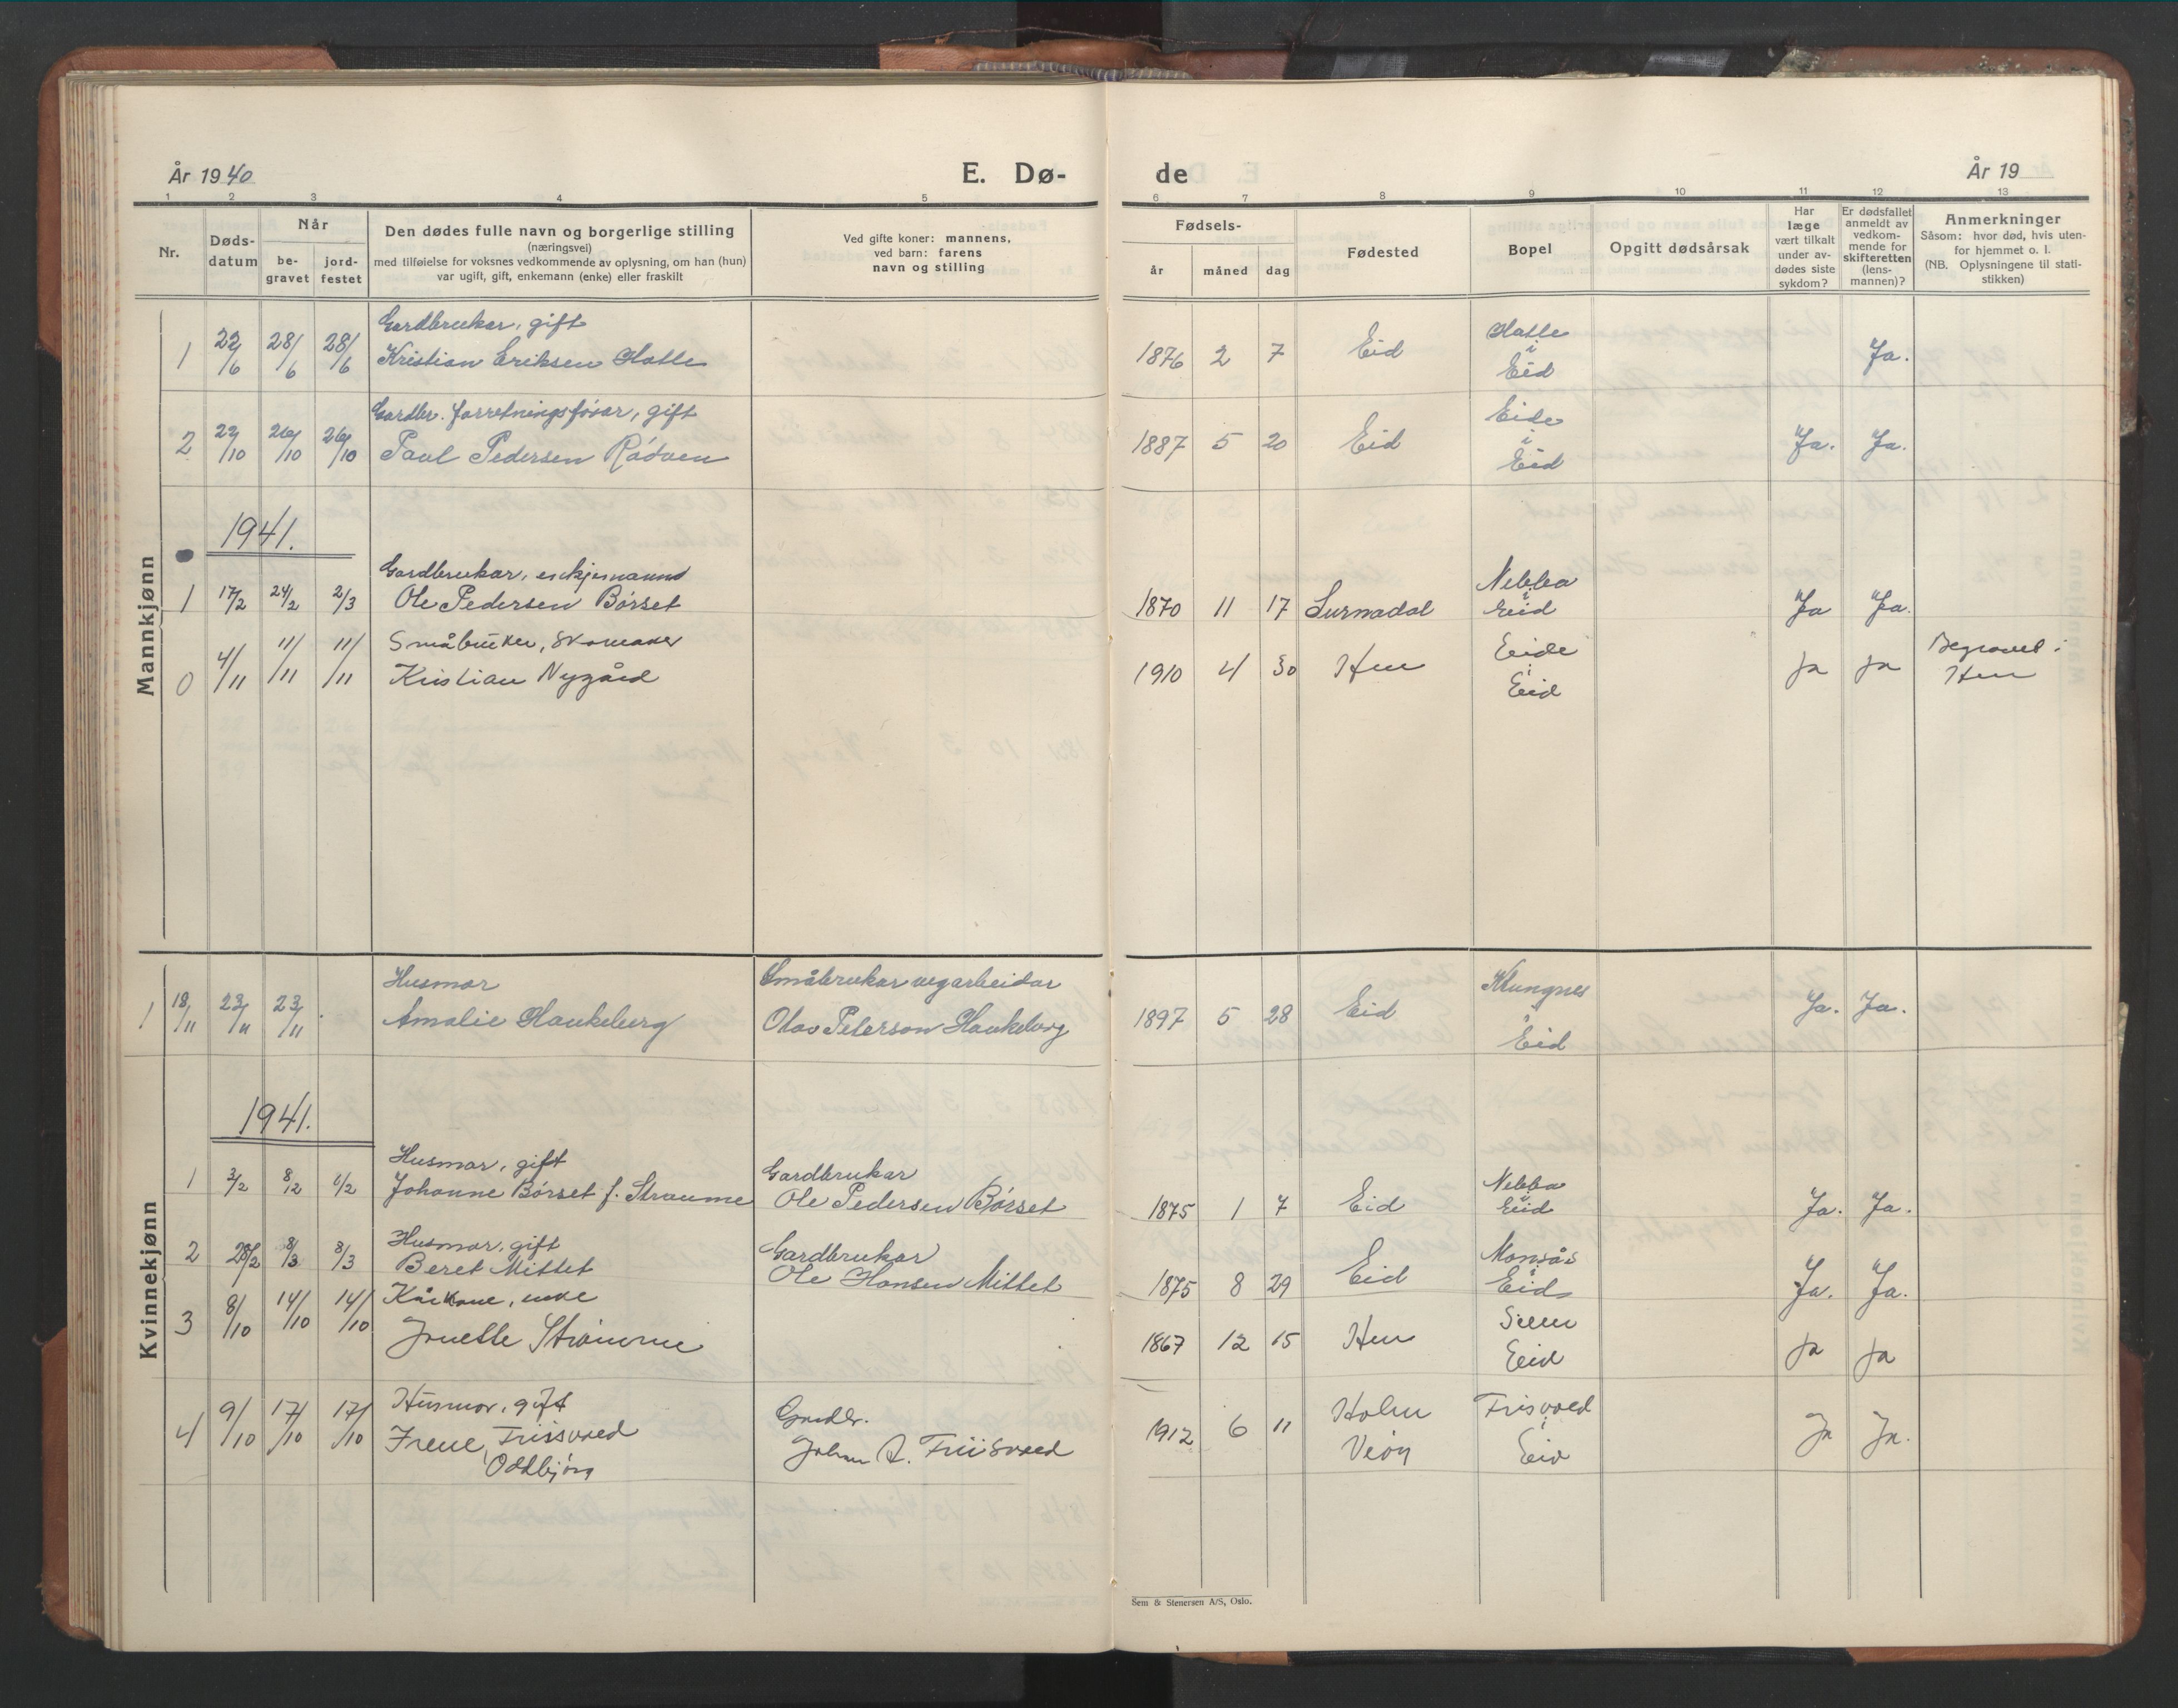 År 1940
E. Dø-
de
År 19
1 2 3 4 5 6 7 8 9 10 11 12 13
Nr.
Døds-
datum
Når
be-
gravet
jord-
festet
Den dødes fulle navn og borgerlige stilling
(næringsvei)
med tilføielse for voksnes vedkommende av oplysning, om han (hun)
var ugift, gift, enkemann (enke) eller fraskilt
Ved gifte koner: mannens,
ved barn: farens
navn og stilling
Fødsels-
år måned dag
Fødested
Bopel
Opgitt dødsårsak
Har
læge
vært tilkalt
under av-
dødes siste
sykdom?
Er dødsfallet
anmeldt av
vedkom-
mende for
skifteretten
(lens-
mannen)?
Anmerkninger
Såsom: hvor død, hvis uten-
for hjemmet o. l.
(NB. Oplysningene til stati-
stikken)
Mannkjønn
Gardbrukar, gift Hatle
1 22/6 28/6 28/6 Kristian Eriksen Hatle 1876 2 7 Eid i Ja.
Eid
Gardbr. forretningsførar, gift Eide
2 22/10 26/10 26/10 Paul Pedersen Rødven 1887 5 20 Eid i Ja. Ja.
Eid
1941.
Gardbrukar, enkjemannd Nebba
1 17/2 24/2 2/3 Ole Pedersen Børset 1870 11 17 Surnadal i Eid Ja Ja.
Småbruker, skomaker Eide Begravet i
0 4/11 11/11 11/11 Kristian Nygård 1910 4 30 Hen i Ja Ja Hen
Eid
Kvinnekjønn
Husmor Småbrukar vegarbeidar Klungnes
1 18/11 23/11 23/11 Amalie Haukeberg Olav Peterson Haukeberg 1897 5 28 Eid i Ja. Ja.
Eid
1941.
Husmor, gift Gardbrukar Nebba
1 3/2 8/2 8/2 Johanne Børset f. Straume Ole Pedersen Børset 1875 1 7 Eid i Eid Ja. Ja.
Husmor, gift Gardbrukar Monsås
2 28/2 8/3 8/3 Beret Mittet Ole Hansen Mittet 1875 8 29 Eid i Eid Ja. Ja.
Kårkone, enke
3 8/10 14/10 14/10 Strømme 1867 12 15 Hen Eid Ja Ja
Husmor, gift Gardbr. Holm Frisvoed
4 9/10 17/10 17/10 Irene Friisvoed Johan A. Friisvoed 1912 6 11 Veøy i Ja Ja.
Oddbjørg Eid
Sem & Stenersen A/S, Oslo.